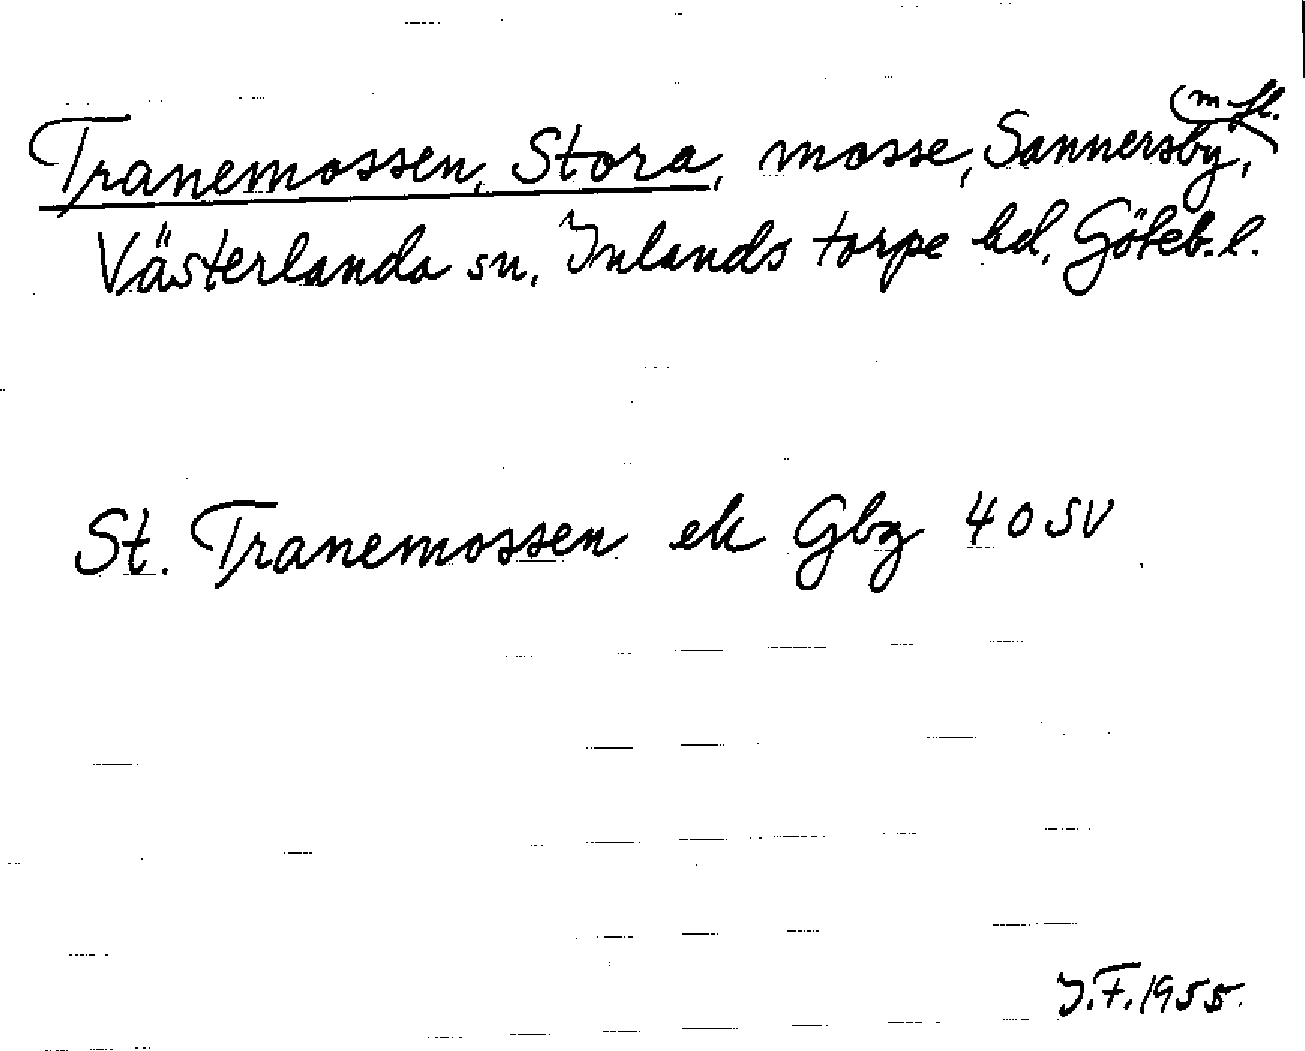 Tranemossen, Stora, mosse, Sannersby, m fl.
Västerlanda sn, Inlands torpe hd, Göteb. l.
St. Tranemossen ek Gbg 40 SV
J.F. 1955.